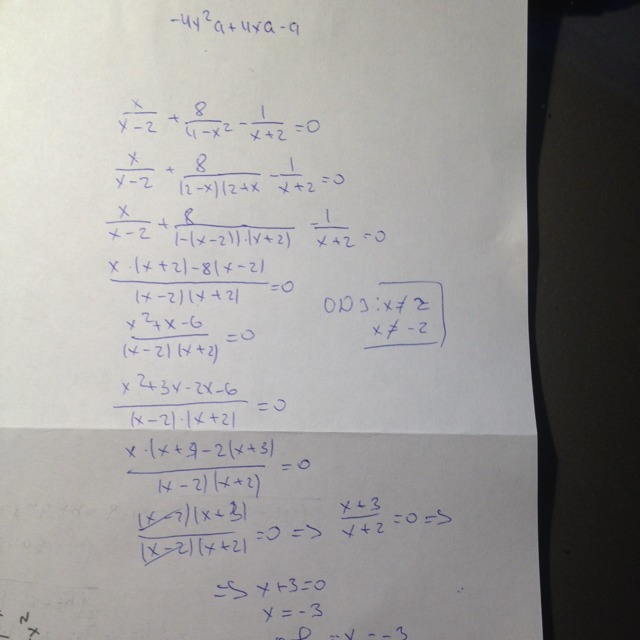 -4x²a+4xa-a
x/(x-2) + 8/(4-x²) - 1/(x+2) = 0
x/(x-2) + 8/((2-x)(2+x) - 1/(x+2) = 0
x/(x-2) + 8/((-(x-2))·(x+2)) - 1/(x+2) = 0
(x·(x+2)-8(x-2))/((x-2)(x+2)) = 0
ОДЗ: x≠2
x≠-2
(x²+x-6)/((x-2)(x+2)) = 0
(x²+3x-2x-6)/((x-2)·(x+2)) = 0
(x·(x+3)-2(x+3))/((x-2)(x+2)) = 0
((x-2)(x+3))/((x-2)(x+2)) = 0 => (x+3)/(x+2) = 0 =>
=> x+3=0
x=-3
x=-3
x²